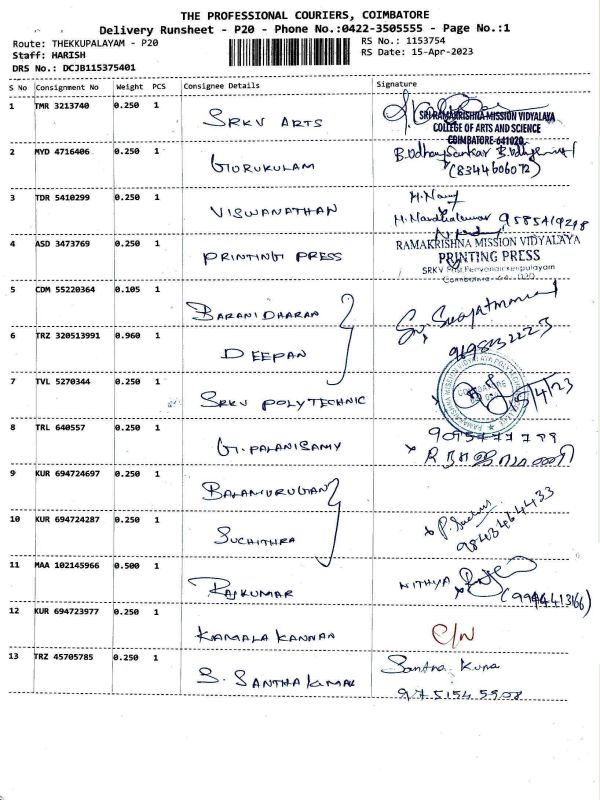 THE PROFESSIONAL COURIERS, COIMBATORE
Delivery Runsheet - P20 - Phone No.:0422-3505555 - Page No.:1
Route: THEKKUPALAYAM - P20
RS No.: 1153754
Staff: HARISH
RS Date: 15-Apr-2023
DRS No.: DCJB115375401
S No Consignment No Weight PCS Consignee Details Signature
1 TMR 3213740 0.250 1 SRKV ARTS
SRI RAMAKRISHNA MISSION VIDYALAYA
COLLEGE OF ARTS AND SCIENCE
COIMBATORE-641020
2 MYD 4716406 0.250 1 GURUKULAM
(8344606072)
3 TDR 5410299 0.250 1 VISWANATHAN
4 ASD 3473769 0.250 1 PRINTING PRESS
RAMAKRISHNA MISSION VIDYALAYA
PRINTING PRESS
5 CDM 55220364 0.105 1 BARANIDHARAN
6 TRZ 320513991 0.960 1 DEEPAN
7 TVL 5270344 0.250 1 SRKV POLYTECHNIC
15/4/23
8 TRL 640557 0.250 1 G. PALANISAMY
9 KUR 694724697 0.250 1 BALAMURUGAN
10 KUR 694724287 0.250 1 SUCHITHRA
9843464433
11 MAA 102145966 0.500 1 RAJKUMAR NITHYA
(9994413166)
12 KUR 694723977 0.250 1 KAMALA KANNAN C/N
13 TRZ 45705785 0.250 1 S. SANTHAKUMAR Santha Kumar